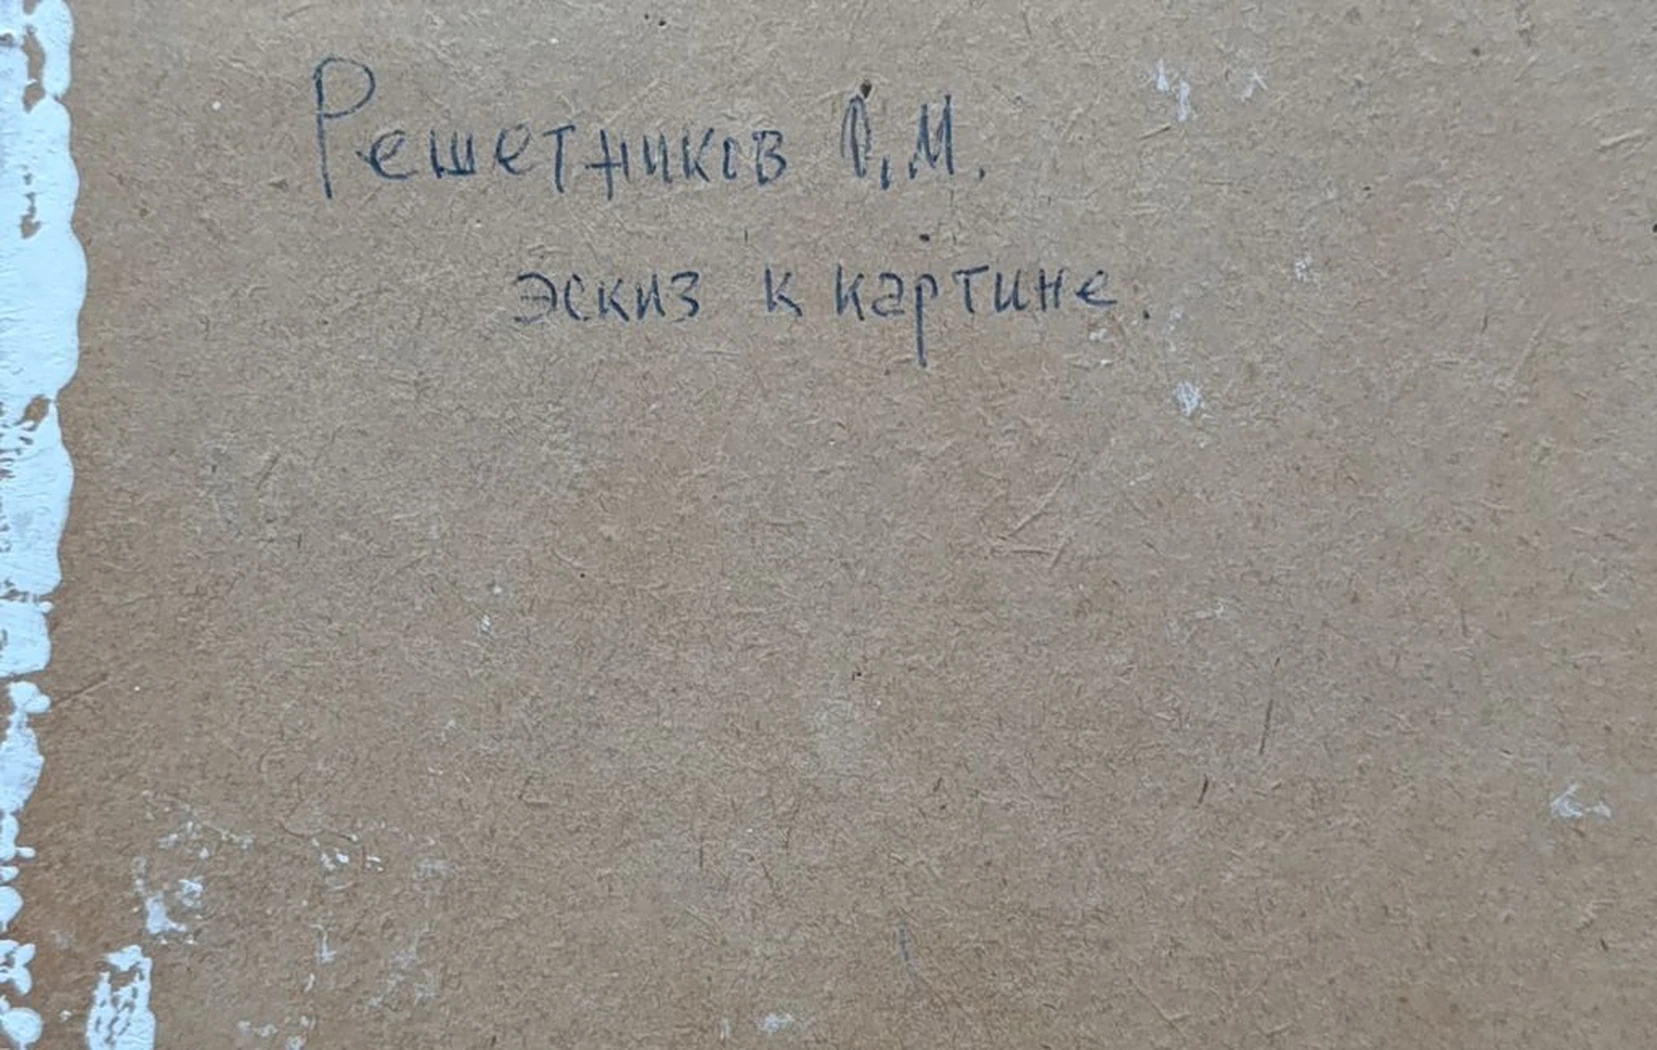 Решетников О.М.
эскиз к картине.